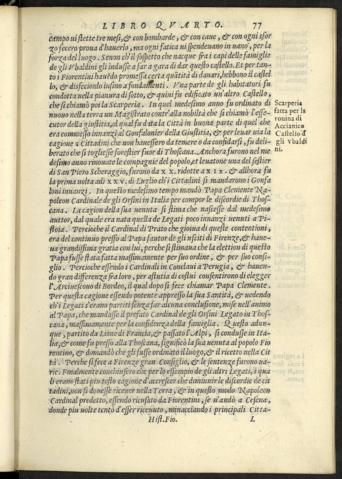 LIBRO QVARTO. 77
campo ui stette tre mesi, & con bombarde, & con caue, & con ogni sfor
zo fecero proua d'hauerlo, ma ogni fatica ui spendeuano in uano, per la
forza del luogo. Se non ch'il sospetto che nacque fra i capi delle famiglie
de gli Vbaldini gli indusse a far a gara di dar questo castello. Et per tan-
to i Fiorentini hauēdo promessa certa quātità di danari, hebbono il castel
lo, & disfecionlo insino a fondamenti. Vna parte de gli habitatori fu
condotta nella pianura di sotto, & quiui fu edificato un'altro Castello,
che si chiamò poi la Scarperia. In quel medesimo anno fu ordinato di
nuouo nella terra un Magistrato contr'alla nobiltà che si chiamò l'esse-
cutor della giustitia, al qual fu data la Città in buona parte di quel che
era commesso innanzi al Gonfalonier della Giustitia, & per leuar uia la
cagione a Cittadini che non hauessero da temere o da confidarsi, fu deli-
berato che si togliesse forestier fuor di Thoscana. Anchora furono nel me
desimo anno rinouate le compagnie del popolo, et leuatone una del sestier
di San Piero Scheraggio, furono da XX. ridotte a XIX. & allhora fu
la prima uolta a di XXV. di Luglio ch'i Cittadini si mandarono i Gonfa
loni innanzi. In questo medesimo tempo mandò Papa Clemente Na-
poleon Cardinale de gli Orsini in Italia per compor le discordie di Tho-
scana. La cagion della sua uenuta si stima che nascesse dal medesimo
autor, dal quale era nata quella de Legati poco innanzi uenuti a Pi-
stoia. Percioche il Cardinal di Prato che gioiua di queste contentioni,
era del continuo presso al Papa fautor de gli usciti di Firenze, & haue-
ua grandissima gratia con lui, perche si stimaua che la elettion di questo
Papa fusse stata fatta massimamente per suo ordine, & per suo consi-
glio. Percioche essendo i Cardinali in Conclaui a Perugia, & hauen-
do gran differenza fra loro, per astutia di costui consentirono di elegger
l'Arciuescouo di Bordeo, il qual dopo si fece chiamar Papa Clemente.
Per questa cagione essendo potente appresso la sua Santità, & uedendo
ch'i Legati erano partiti senza far alcuna conclusione, mise nell'animo
al Papa, che mandasse il prefato Cardinal de gli Orsini Legato in Thosc-
ana, massimamente per la confidenza della famiglia. Questo adun-
que, partito da Lione di Francia, & passato l'Alpi, si condusse in Ita-
lia, & come fu presso alla Thoscana, significò la sua uenuta al popolo Fio
rentino, & domandò che gli fusse ordinato il luogo, & il riceuto nella Cit
tà. Perche si fece a Firenze gran Consiglio, & le sentenze furono ua-
rie. Finalmente conchiusero che per lo essempio de gli altri Legati, i qua
li erano stati piu tosto cagione d'accrescer che diminuir le discordie de cit
tadini, non si douesse riceuer nella Terra, & in questo modo Napoleon
Cardinal predetto, essendo ricusato da Fiorentini, se n'andò a Cesena,
donde piu uolte tentò d'esser riceuuto, minacciando i principali Citta-
Hist. Fio. L
Scarperia
fatta per la
rouina di
Accianico
Castello d
gli Vbaldi
ni.